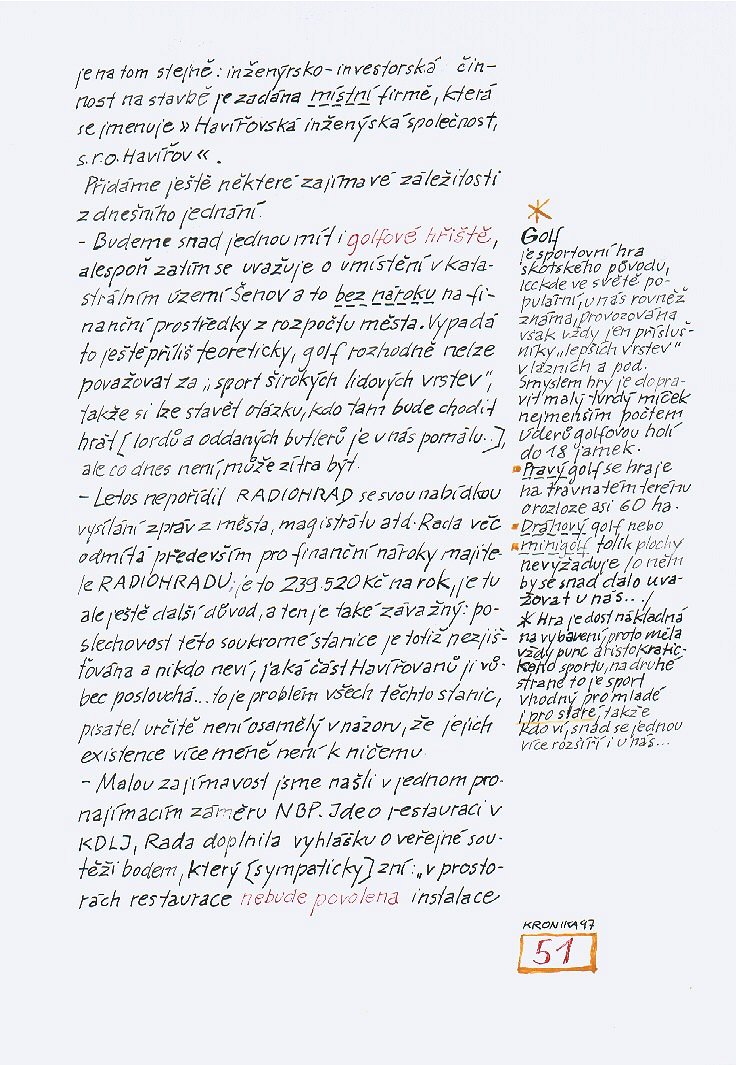 je na tom stejně: inženýrsko-investorská čin-
nost na stavbě je zadána místní firmě, která
se jmenuje » Havířovská inženýská společnost,
s.r.o. Havířov «.
Přidáme ještě některé zajímavé záležitosti
z dnešního jednání.
- Budeme snad jednou mít i golfové hřiště,
alespoň zatím se uvažuje o umístění v kata-
strálním území Šenov a to bez nároku na fi-
nanční prostředky z rozpočtu města. Vypadá
to ještě příliš teoreticky, golf rozhodně nelze
považovat za „sport širokých lidových vrstev",
takže si lze stavět otázku, kdo tam bude chodit
hrát [lordů a oddaných butlerů je u nás pomálu..],
ale co dnes není, může zítra být.
- Letos nepořídil RADIOHRAD se svou nabídkou
vysílání zpráv z města, magistrátu atd. Rada věc
odmítá především pro finanční nároky majite-
le RADIOHRADU; je to 239.520 Kč na rok, je tu
ale ještě další důvod, a ten je také závažný: po-
slechovost této soukromé stanice je totiž nezjiš-
ťována a nikdo neví, jaká část Havířovanů ji vů-
bec poslouchá... to je problém všech těchto stanic,
pisatel určitě není osamělý v názoru, že jejich
existence více méně není k ničemu.
- Malou zajímavost jsme našli v jednom pro-
najímacím záměru NBP. Jde o restauraci v
KDLJ, Rada doplnila vyhlášku o veřejné sou-
těži bodem, který [sympaticky] zní: „v prosto-
rách restaurace nebude povolena instalace
Golf
je sportovní hra
skotského původu,
leckde ve světě po-
pulární, u nás rovněž
známá, provozována
však vždy jen přísluš-
níky „lepších vrstev"
v lázních a pod.
Smyslem hry je dopra-
vit malý tvrdý míček
nejmenším počtem
úderů golfovou holí
do 18 jamek.
Pravý golf se hraje
na travnatém terénu
o rozloze asi 60 ha.
Dráhový golf nebo
minigolf tolik plochy
nevyžaduje /o něm
by se snad dalo uva-
žovat u nás.../
* Hra je dost nákladná
na vybavení, proto měla
vždy punc aristokratic-
kého sportu, na druhé
straně to je sport
vhodný pro mladé
i pro staré, takže
kdo ví, snad se jednou
více rozšíří i u nás...
KRONIKA 97
51